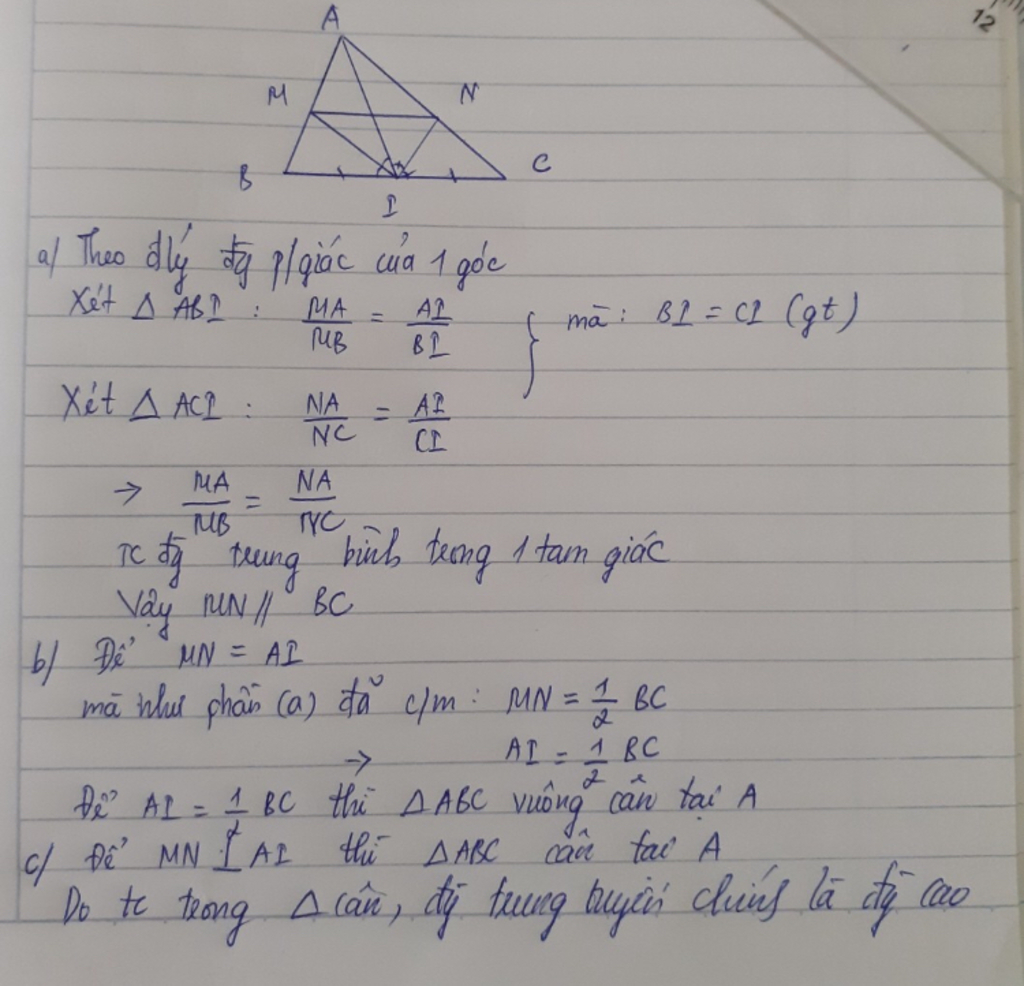 12
A
M N
B C
I
a/ Theo đlý đg p/giác của 1 góc
Xét Δ ABI : MA/MB = AI/BI } mà : BI = CI (gt)
Xét Δ ACI : NA/NC = AI/CI
→ MA/MB = NA/NC
TC đg trung bình trong 1 tam giác
Vậy MN // BC
b/ Để MN = AI
mà như phần (a) đã c/m : MN = 1/2 BC
→ AI = 1/2 BC
Để AI = 1/2 BC thì ΔABC vuông cân tại A
c/ Để MN ⊥ AI thì ΔABC cân tại A
Do tc trong Δ cân, đg trung tuyến chính là đg cao